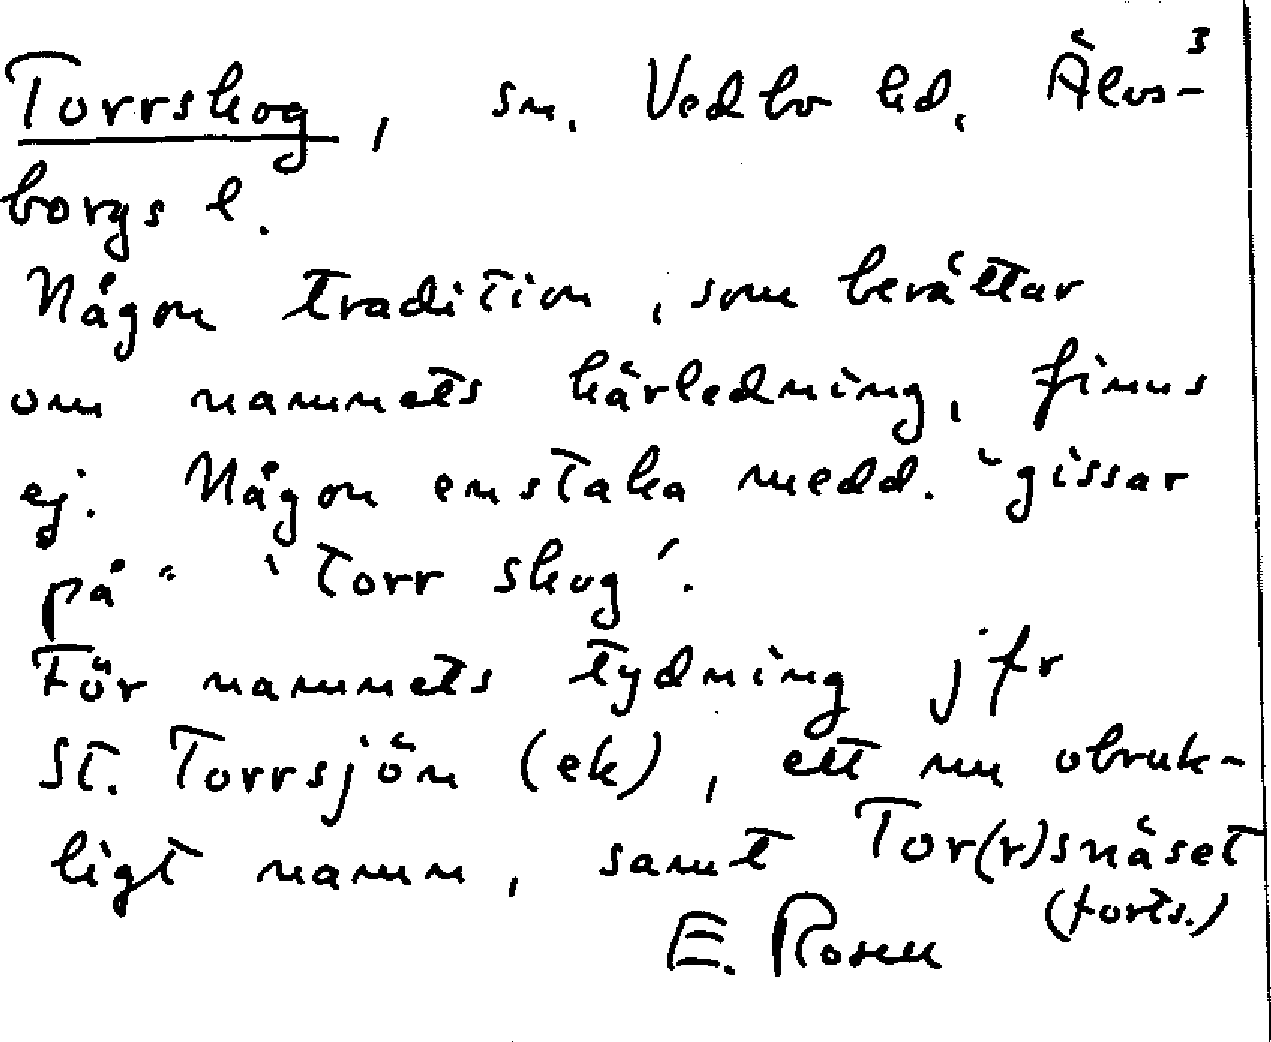 3
Torrskog, sn. Vedbo hd. Älvs-
borgs l.
Någon tradition, som berättar
om namnets härledning, finns
ej. Någon enstaka medd. "gissar
på" 'torr skog'.
För namnets tydning jfr
St. Torrsjön (ek), ett nu obruk-
ligt namn, samt Tor(r)snäset
(forts.)
E. Rosen